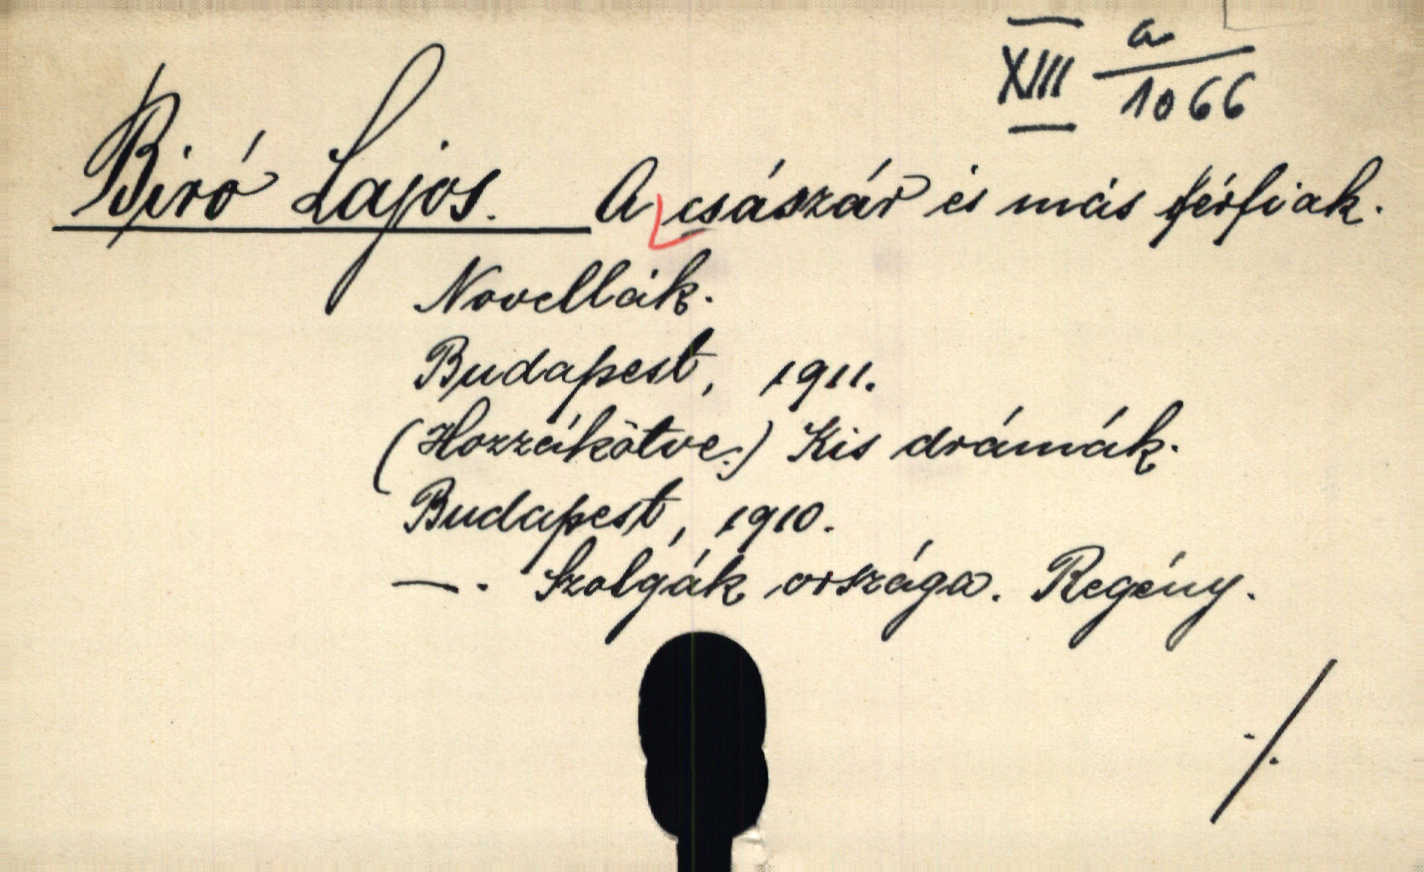 XIII a/1066
Biró Lajos. A császár és más férfiak.
Novellák.
Budapest, 1911.
(Hozzákötve:) Kis drámák.
Budapest, 1910.
—. Szolgák országa. Regény.
./.